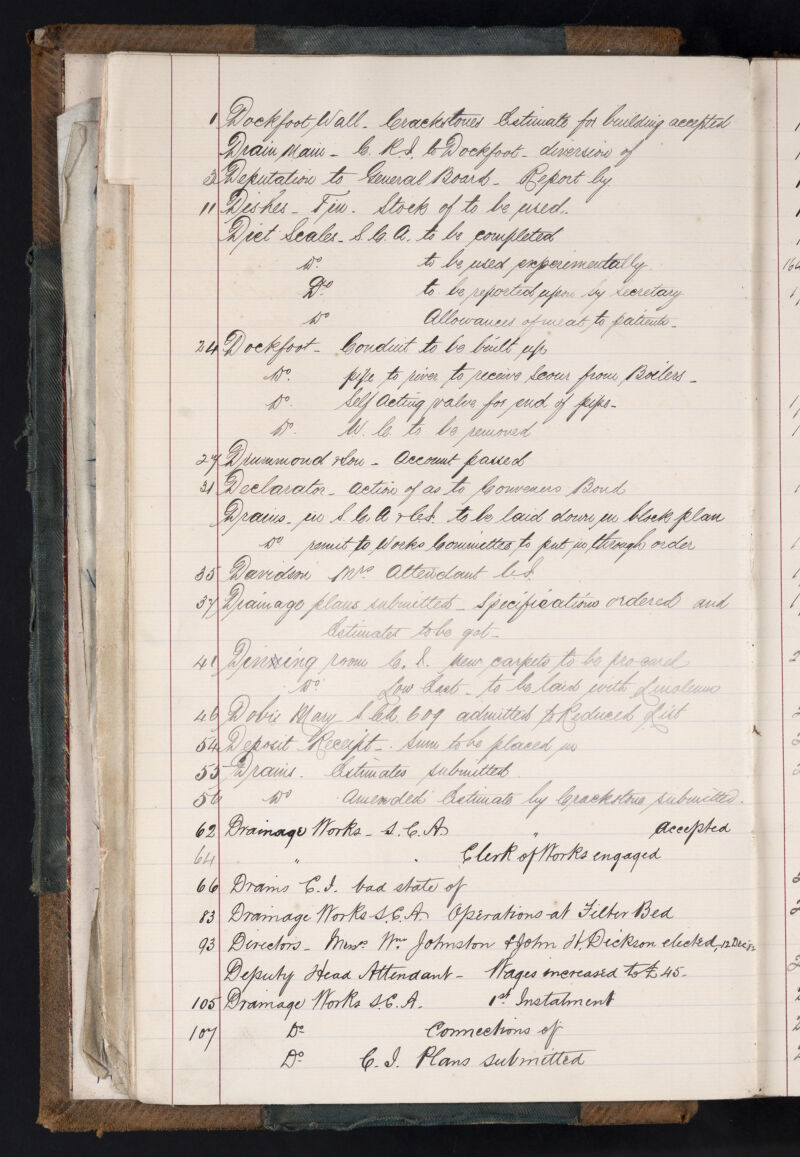 1 Dockfoot Wall - Crackstones Estimate for building accepted
Drain Main - C.R.I. to Dockfoot - diversion of
3 Deputation to General Board - Report by
11 Dishes - Tin. Stock of to be used.
Diet Scales - S.C.A. to be completed
Do. to be used experimentally.
Do to be reported upon by Secretary
Do Allowances of meat to patients -
24 Dockfoot - Conduit to be built up
Do. pipe to river to receive scour from Boilers -
Do. Self Acting valve for end of pipe -
Do. W.C. to be removed
27 Drummond & Son - Account passed
31 Declarator - Action of as to Conveners Bond
Drains - in S.C.A & C.I. to be laid down in block plan
Do remit to Works Committee to put in through order
35 Davidson Mrs Attendant C.I.
37 Drainage plans submitted - Specifications ordered and
Estimates to be got -
41 Dinning room C.I. New carpets to be procured
Do Low East - to be laid with Linoleum
46 Dobie Mary S.C.A. 609 admitted to Reduced List
54 Deposit Receipt - Sum to be placed in
55 Drains. Estimates submitted.
56 Do Amended Estimate by Crackstone submitted.
62 Drainage Works - S.C.A. " accepted
64 " . Clerk of Works engaged
66 Drains C.I. bad state of
83 Drainage Works S.C.A. Operations at Filter Bed
93 Directors - Messrs Wm Johnston & John H. Dickson elected, 12 Dec
Deputy Head Attendant - Wages increased to £45.
105 Drainage Works S.C.A. 1st Instalment
107 Do Connections of
Do C.I. Plans submitted